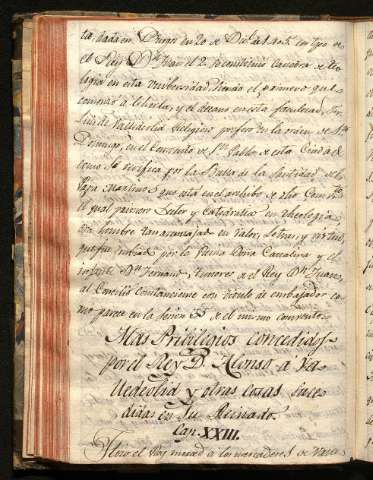 ta, dada en Burgos en 20 de Dic. de 1405. en tpo de
el Rey Dn Juan el 2. se instituio Cathedra de Teo
logia en esta universidad, siendo el primero que
comenzó a leherla, y el decano en esta facultad, Fr.
Luis de Valladolid religioso profeso en la orden de Sto
Domingo, en el Convento de Sn Pablo de esta Ciudad
como se verifica por la Bulla de la Santidad de el
Papa Martino 5 que está en el archibo de dho Convto
el qual primero Lector y Catedratico en theologia
era hombre tan aranzajado en valor, letras, y virtud,
que fue embiado por la Reina Doña Catalina y el
infante Dn Fernando, tutores de el Rey Dn Juan
al Concilio Constanciense con titulo de embajador co
mo parece en la sesion de el mismo convento.
Mas Privilegios concedidos
por el Rey D. Alonso a Va
lledolid y otras cosas suce
didas en su Reinado.
Cap. XXIII.
Hizo el Rey merced a los mercaderes de